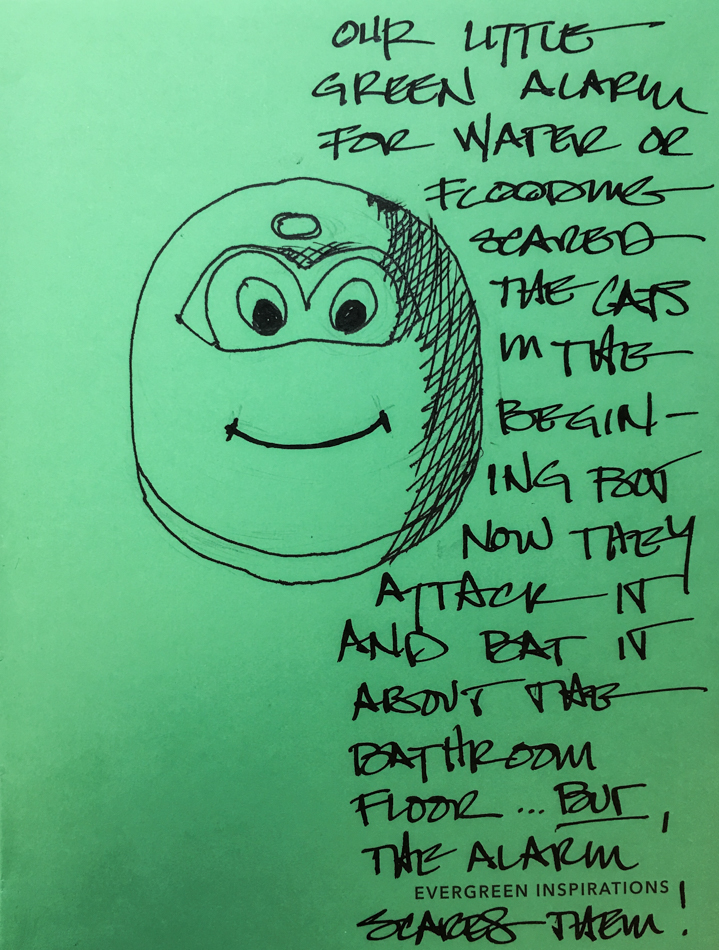 OUR LITTLE
GREEN ALARM
FOR WATER OR
FLOODING
SCARED
THE CATS
IN THE
BEGIN-
ING BUT
NOW THEY
ATTACK IT
AND BAT IT
ABOUT THE
BATHROOM
FLOOR ... BUT,
THE ALARM
EVERGREEN INSPIRATIONS
SCARES THEM!